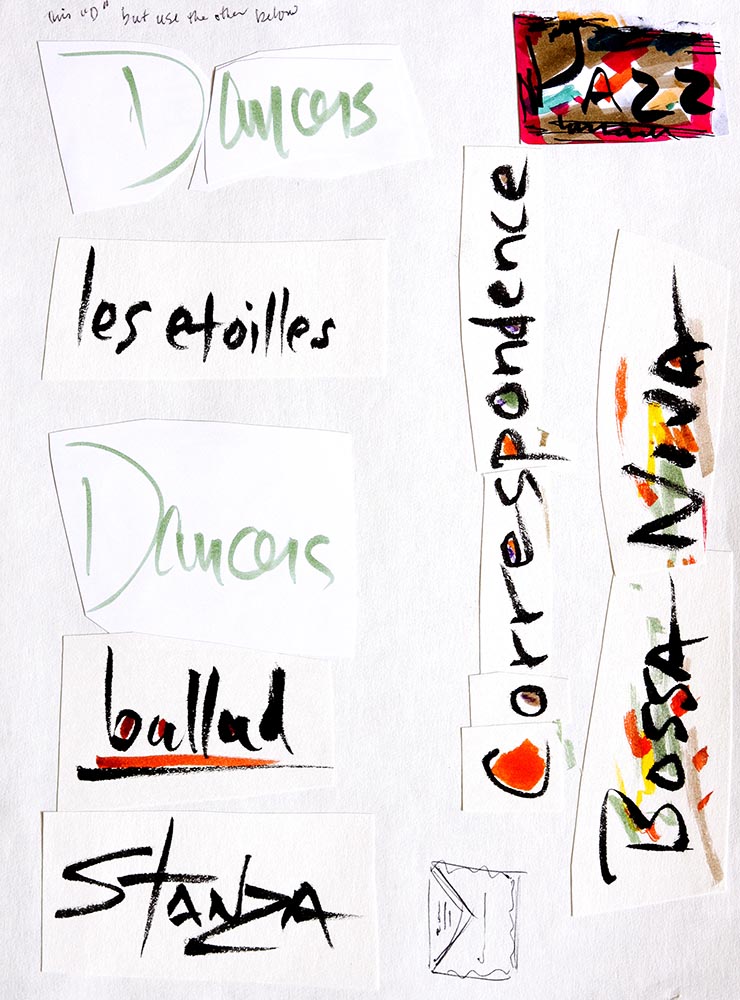 this "D" but use the other below
Dancers
les etoilles
Dancers
ballad
Stanza
JAZZ
Correspondence
Bossa Nova